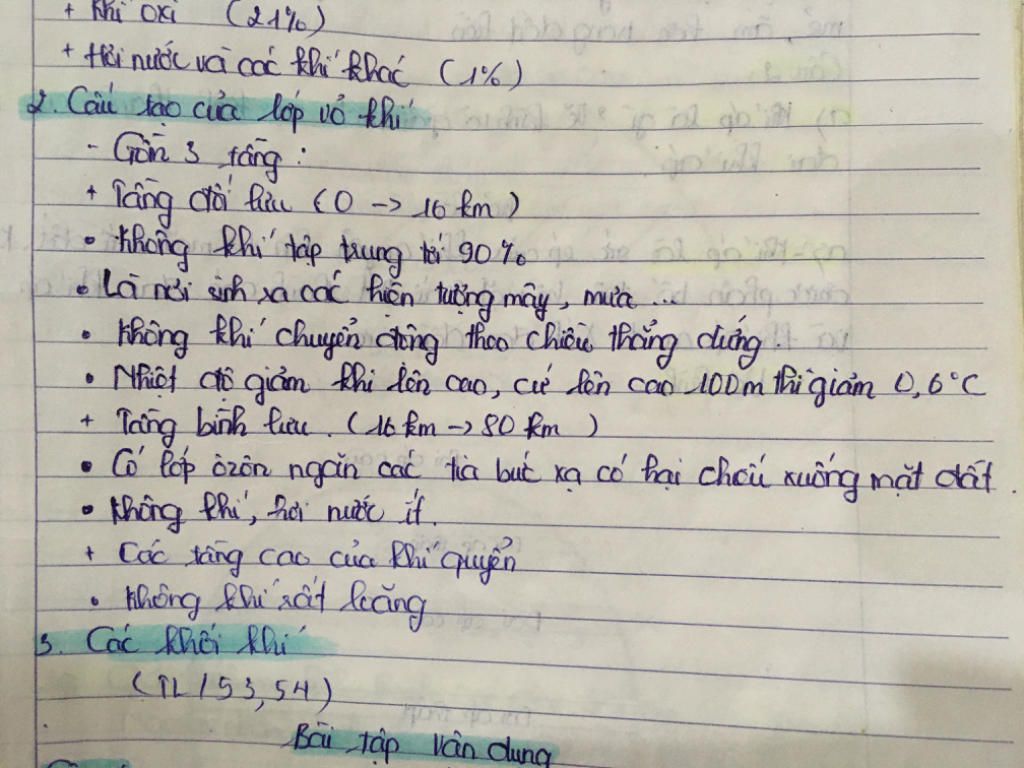 + Khí oxi (21%)
+ Hơi nước và các khí khác (1%)
2. Cấu tạo của lớp vỏ khí
- Gồm 3 tầng :
+ Tầng đối lưu (0 -> 16 km)
• Không khí tập trung tới 90%
• Là nơi sinh ra các hiện tượng mây, mưa ...
• Không khí chuyển động theo chiều thẳng đứng.
• Nhiệt độ giảm khi lên cao, cứ lên cao 100m thì giảm 0,6°C
+ Tầng bình lưu. (16km -> 80 km)
• Có lớp ôzôn ngăn các tia bức xạ có hại chiếu xuống mặt đất.
• Không khí, hơi nước ít.
+ Các tầng cao của khí quyển
• Không khí rất loãng
3. Các khối khí
(TL/53,54)
Bài tập vận dụng